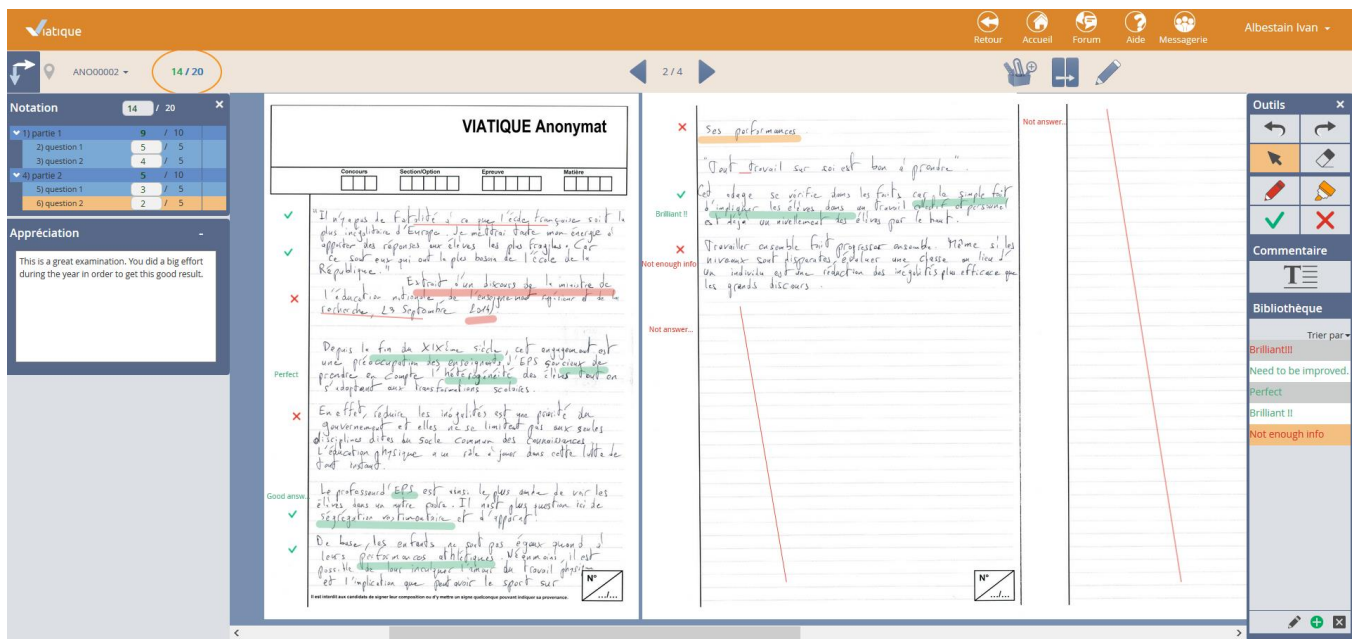 Viatique
Retour
Accueil
Forum
Aide
Messagerie
Albestain Ivan
ANO00002
14 / 20
2 / 4
Notation 14 / 20 ×
1) partie 1 9 / 10
2) question 1 5 / 5
3) question 2 4 / 5
4) partie 2 5 / 10
5) question 1 3 / 5
6) question 2 2 / 5
Appréciation -
This is a great examination. You did a big effort
during the year in order to get this good result.
VIATIQUE Anonymat
Concours Section/Option Epreuve Matière
"Il n'y a pas de fatalité à ce que l'école française soit la
plus inégalitaire d'Europe. Je mettrai toute mon énergie à
apporter des réponses aux élèves les plus fragiles. Car
ce sont eux qui ont le plus besoin de l'école de la
République."
Extrait d'un discours de la ministre de
l'éducation nationale de l'enseignement supérieur et de la
recherche, 23 Septembre 2014
Depuis la fin du XIXème siècle, cet engagement est
une préoccupation des enseignants d'EPS soucieux de
Perfect
prendre en compte l'hétérogénéité des élèves tout en
s'adaptant aux transformations scolaires.
En effet, réduire les inégalités est une priorité du
gouvernement et elles ne se limitent pas aux seules
disciplines dites du socle commun des connaissances
L'éducation physique a un rôle à jouer dans cette lutte de
tout instant.
Good answ...
Le professeur d'EPS est ainsi le plus de voir les
élèves dans un autre cadre. Il n'est plus question ici de
ségrégation vestimentaire et d'apparat.
De base, les enfants ne sont pas égaux quand à
leurs performances athlétiques. Néanmoins, il est
possible de leur inculquer l'amour du travail physique
et l'implication que peut avoir le sport sur
N°
.../...
Il est interdit aux candidats de signer leur composition ou d'y mettre un signe quelconque pouvant indiquer sa provenance.
Ses performances.
"Tout travail sur soi est bon à prendre".
Cet adage se vérifie dans les faits car le simple fait
d'impliquer les élèves dans un travail et personnel
Brilliant !!
est déjà un nivellement des élèves par le haut.
Travailler ensemble fait progresser ensemble. Même si les
Not enough info
niveaux sont disparates, évaluer une classe en lieu d'
un individu est une réduction des inégalités plus efficace que
les grands discours.
Not answer...
N°
.../...
Not answer...
Outils ×
Commentaire
T
Bibliothèque
Trier par
Brilliant!!!
Need to be improved.
Perfect
Brilliant !!
Not enough info